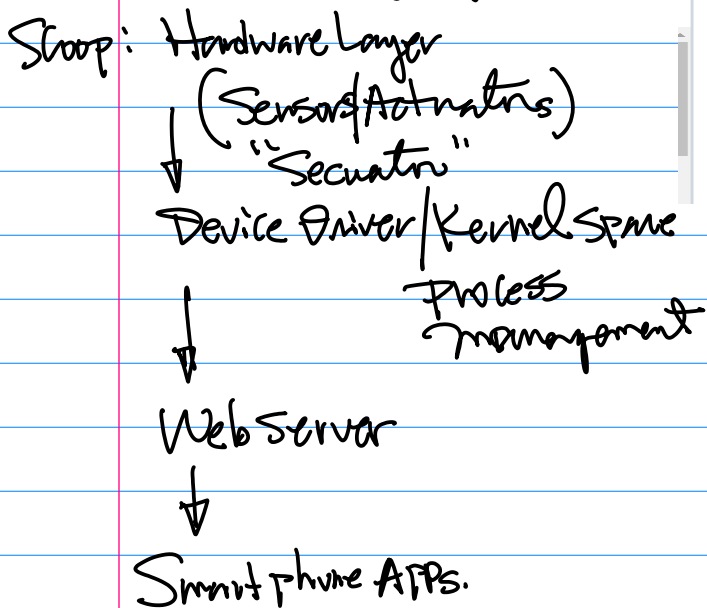 Scoop: Hardware Layer
(Sensors/Actuators)
"Secuator"
Device Driver/Kernel Space
Process
management
Web Server
Smartphone APPs.